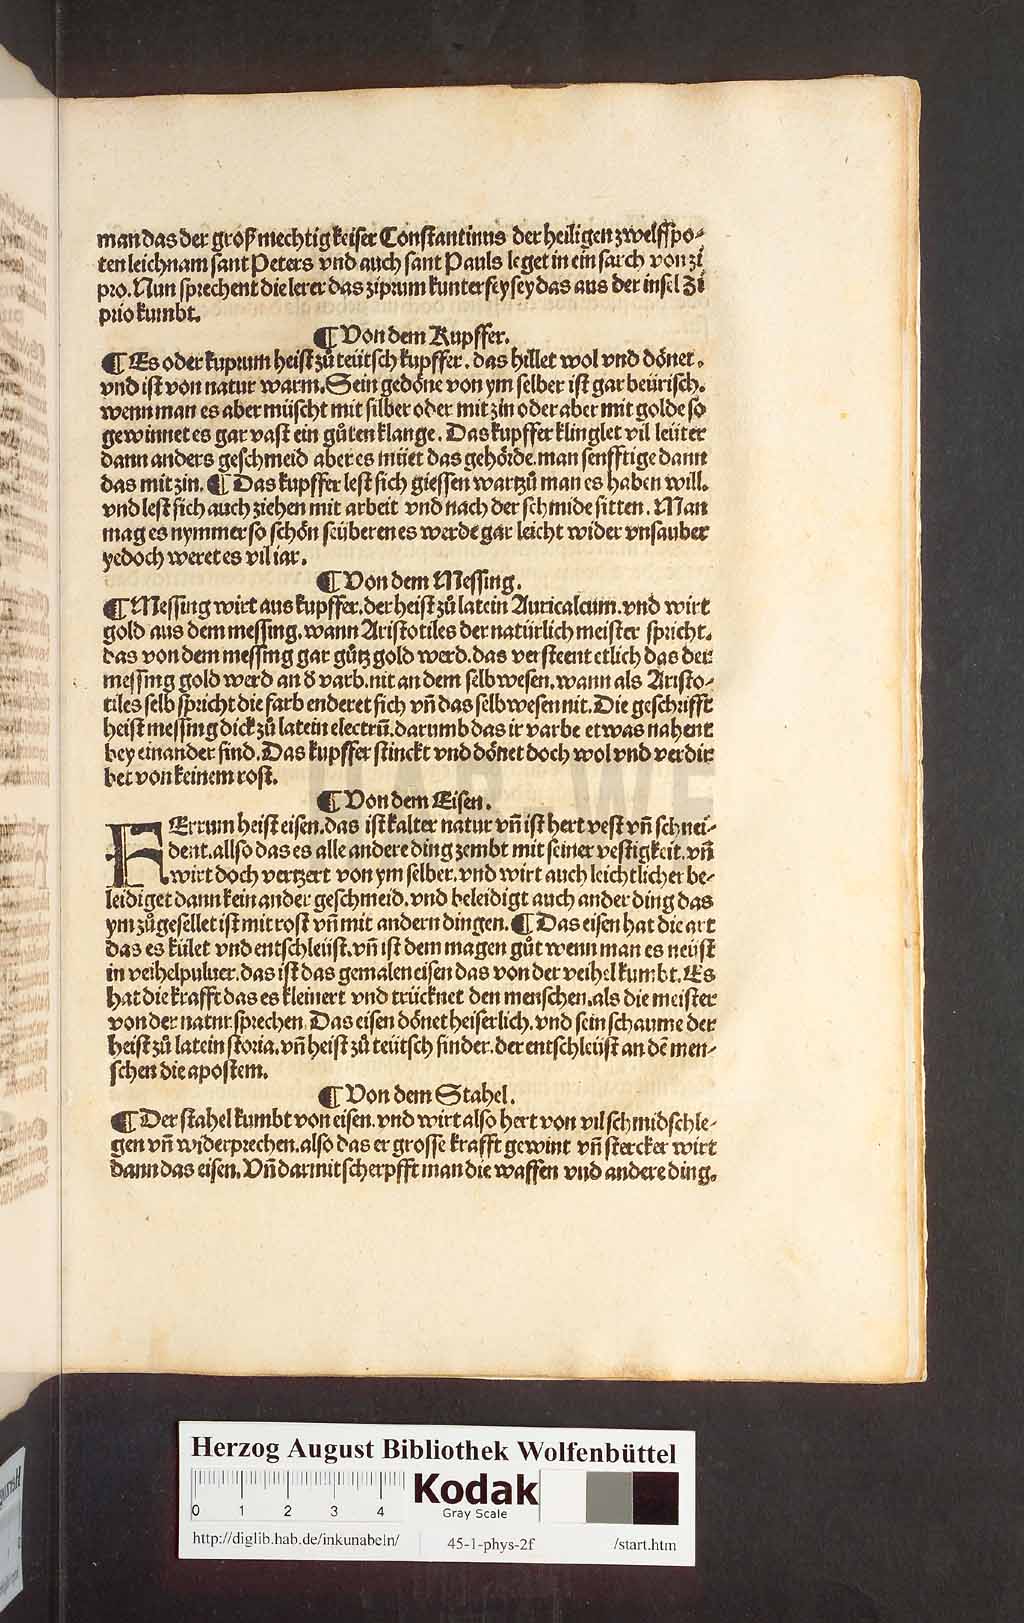 man das der groß mechtig keiser Constantinus der heiligen zwelffpo-
ten leichnam sant Peters vnd auch sant Pauls leget in ein sarch von zi
pro. Nun sprechent die lerer das ziprum kunterfey sey das aus der insel Zi
prio kumbt.
¶ Von dem Kupffer.
¶ Es oder kuprum heist zů teütsch kupffer. das hillet wol vnd dönet.
vnd ist von natur warm. Sein gedöne von ym selber ist gar beürisch.
wenn man es aber müscht mit silber oder mit zin oder aber mit golde so
gewinnet es gar vast ein gůten klange. Das kupffer klinglet vil leüter
dann anders geschmeid aber es müet das gehörde. man senfftige dann
das mit zin. ¶ Das kupffer lest sich giessen wartzů man es haben will.
vnd lest sich auch ziehen mit arbeit vnd nach der schmide sitten. Man
mag es nymmer so schön seüberen es werde gar leicht wider vnsauber
yedoch weret es vil iar.
¶ Von dem Messing.
¶ Messing wirt aus kupffer. der heist zů latein Auricalcum. vnd wirt
gold aus dem messing. wann Aristotiles der natürlich meister spricht.
das von dem messing gar gůtz gold werd. das versteent etlich das der
messing gold werd an d̕ varb. nit an dem selb wesen. wann als Aristo-
tiles selb spricht die farb enderet sich vn̄ das selb wesen nit. Die geschrifft
heist messing dick zů latein electrū. darumb das ir varbe etwas nahent
bey einander sind. Das kupffer stinckt vnd dönet doch wol vnd verdir
bet von keinem rost.
¶ Von dem Eisen.
FErrum heist eisen. das ist kalter natur vn̄ ist hert vest vn̄ schnei-
dent. allso das es alle andere ding zembt mit seiner vestigkeit. vn̄
wirt doch vertzert von ym selber. vnd wirt auch leichtlicher be-
leidiget dann kein ander geschmeid. vnd beleidigt auch ander ding das
ym zů gesellet ist mit rost vn̄ mit andern dingen. ¶ Das eisen hat die art
das es kület vnd entschleüst. vn̄ ist dem magen gůt wenn man es neüst
in veihelpuluer. das ist das gemalen eisen das von der veihel kumbt. Es
hat die krafft das es kleinert vnd trücknet den menschen. als die meister
von der natur sprechen. Das eisen dönet heiserlich. vnd sein schaume der
heist zů latein storia. vn̄ heist zů teütsch sinder. der entschleüst an dē men-
schen die apostem.
¶ Von dem Stahel.
¶ Der stahel kumbt von eisen. vnd wirt also hert von vil schmidschle-
gen vn̄ widerprechen. also das er grosse krafft gewint vn̄ stercker wirt
dann das eisen. Vn̄ darmit scherpfft man die waffen vnd andere ding.
Herzog August Bibliothek Wolfenbüttel
0 1 2 3 4
Kodak
Gray Scale
http://diglib.hab.de/inkunabeln/ 45-1-phys-2f /start.htm